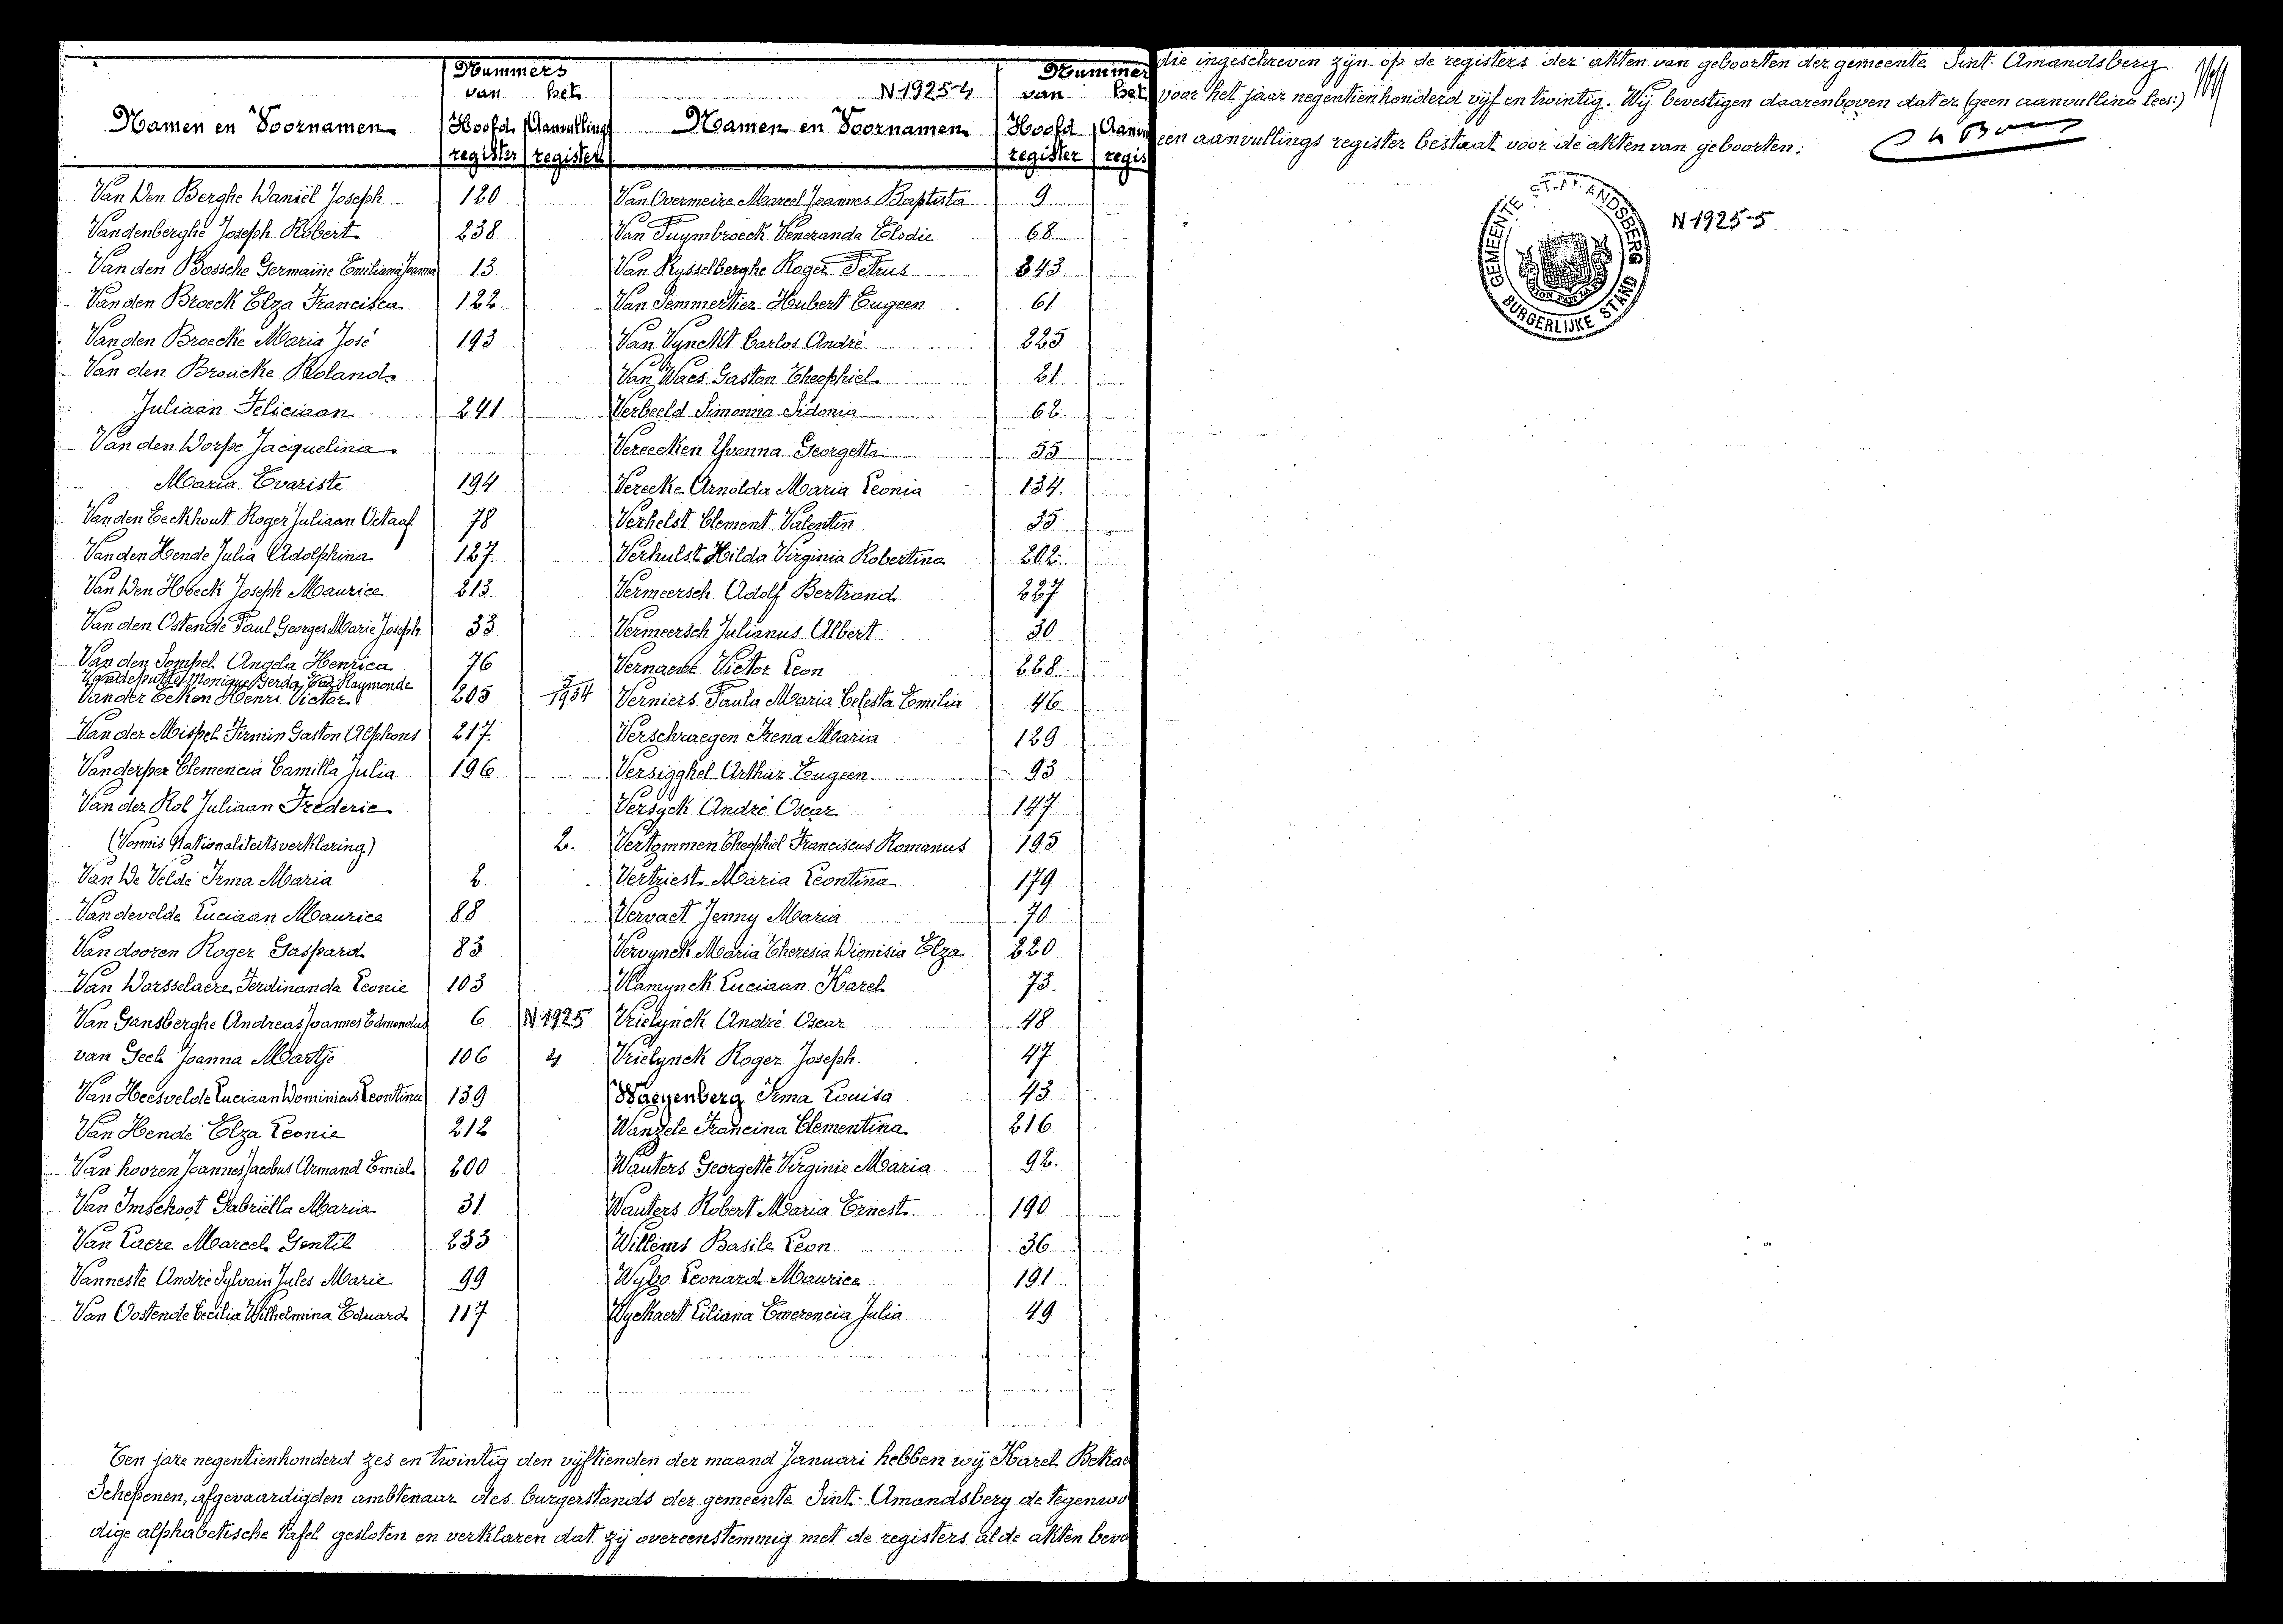 Nummers
van het
Namen en Voornamen
Hoofd Aanvullings
register register
Van Den Berghe Daniël Joseph 120
Vandenberghe Joseph Robert 238
Van den Bossche Germaine Emiliana Joanna 13
Van den Broeck Elza Francisca 122.
Van den Broecke Maria José 193
Van den Broucke Roland
Juliaan Feliciaan 241
Van den Dorpe Jacquelina
Maria Evariste 194
Van den Eeckhout Roger Juliaan Octaaf 78
Van den Hende Julia Adolphina 127.
Van Den Hoeck Joseph Maurice 213.
Van den Ostende Paul Georges Marie Joseph 33
Van den Sompel Angela Henrica 76
Vandeputte Monique Gerda Raymonde 5/1934
Van der Eeken Henri Victor 205
Van der Mispel Firmin Gaston Alphons 217.
Vanderper Clemencia Camilla Julia 196
Van der Rol Juliaan Frederic
(Vonnis Nationaliteitsverklaring) 2.
Van De Velde Irma Maria 2.
Vandevelde Luciaan Maurice 88
Van dooren Roger Gaspard 83
Van Dorsselaere Ferdinanda Leonie 103
Van Gansberghe Andreas Joannes Edmondus 6 N 1925
van Geel Joanna Martje 106 4
Van Heesvelde Luciaan Dominicus Leontina 139
Van Hende Elza Leonie 212
Van hooren Joannes Jacobus Armand Emiel 200
Van Imschoot Gabriëlla Maria 31
Van Laere Marcel Gentil 233
Vanneste André Sylvain Jules Marie 99
Van Oostende Cecilia Wilhelmina Eduard 117
Nummer
N 1925-4 van het
Namen en Voornamen Hoofd Aanvu
register regis
Van Overmeire Marcel Joannes Baptista 9
Van Puymbroeck Veneranda Elodie 68
Van Rysselberghe Roger Petrus 343
Van Semmertier Hubert Eugeen 61
Van Vynckt Carlos André 225
Van Waes Gaston Theophiel 21
Verbeeld Simonna Sidonia 62.
Vereecken Yvonna Georgetta 55
Verecke Arnolda Maria Leonia 134.
Verhelst Clement Valentin 35
Verhulst Hilda Virginia Robertina 202.
Vermeersch Adolf Bertrand 227
Vermeersch Julianus Albert 30
Vernaeve Victor Leon 228
Verniers Paula Maria Celesta Emilia 46
Verschraegen Irena Maria 129
Versigghel Arthur Eugeen 93
Versyck André Oscar 147
Vertommen Theophiel Franciscus Romanus 195
Vertriest Maria Leontina 179
Vervaet Jenny Maria 70
Vervynck Maria Theresia Dionisia Elza 220
Vlamynck Luciaan Karel 73.
Vrielynck André Oscar 48
Vrielynck Roger Joseph 47
Waeyenberg Irma Louisa 43
Wanzele Francina Clementina 216
Wauters Georgette Virginie Maria 92.
Wauters Robert Maria Ernest 190
Willems Basile Leon 36
Wylso Leonard Maurice 191
Wyckaert Liliana Emerencia Julia 49
Ten jare negentienhonderd zes en twintig den vijftienden der maand Januari hebben wij Karel Bekae
Schepenen, afgevaardigden ambtenaar des burgerstands der gemeente Sint. Amandsberg de tegenwo
dige alphabetische tafel gesloten en verklaren dat zij overeenstemmig met de registers al de akten beva
die ingeschreven zijn op de registers der akten van geboorten der gemeente Sint. Amandsberg
voor het jaar negentienhonderd vijf en twintig. Wij bevestigen daarenboven dat er (geen aanvulling lees:)
een aanvullings register bestaat voor de akten van geboorten:
GEMEENTE ST. AMANDSBERG
BURGERLIJKE STAND
N 1925-5